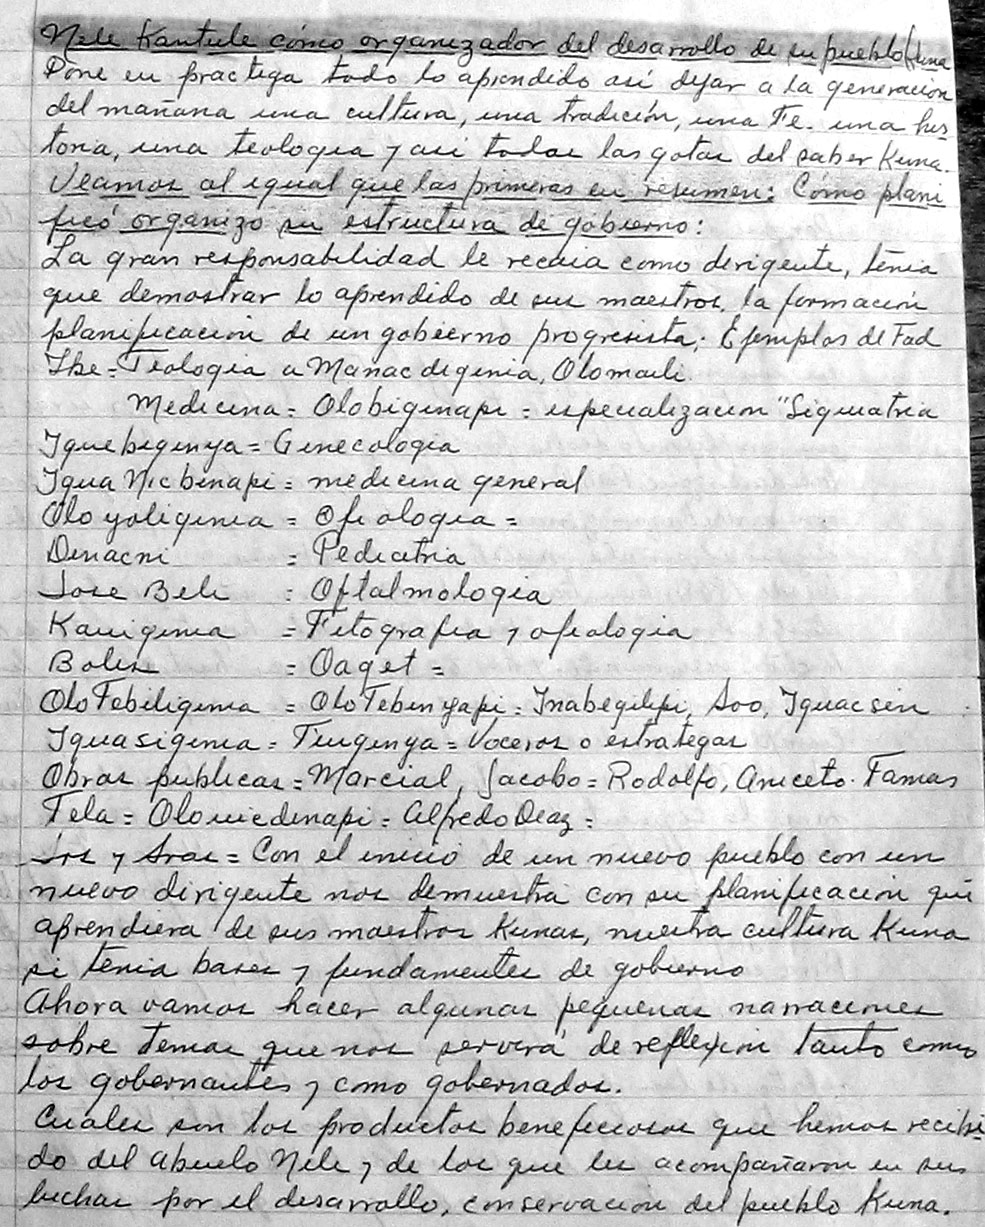 Nele Kantule cómo organizador del desarrollo de su pueblo Kuna
Pone en practiga todo lo aprendido así dejar a la generación
del mañana una cultura, una tradición, una Fe. una his
toria, una teologia y asi todas las gotas del saber Kuna.
Veamos al igual que las primeras en resumen: Cómo plani
ficó organizo su estructura de gobierno:
La gran responsabilidad le recaia como dirigente, tenia
que demostrar lo aprendido de sus maestros, la formación
planificación de un gobierno progresista; Ejemplos de Fad
Ibe = Teologia a Manacdiginia, Olomaili.
Medicina = Olobiginapi = especializacion "Siquiatria
Iguebiginya = Ginecologia
Igua Nicbinapi = medicina general
Olo yoliginia = Ofiologia =
Dinacni = Pediatria
Jose Beli = Oftalmologia
Kauiginia = Fitografia y ofiologia
Boliz = Oaget =
OloTebiliginia = OloTebinyapi = Inabegilipi, Soo, Iguacsin
Iguasiginia = Tiuginya = Voceros o estrategas
Obras publicas = Marcial, Jacobo = Rodolfo, Aniceto. Famas
Tela = Olouiedinapi = Alfredo Deaz =
Srs y Sras = Con el inicio de un nuevo pueblo con un
nuevo dirigente nos demuestra con su planificación que
aprendiera de sus maestros Kunas, nuestra cultura Kuna
si tenia bases y fundamentes de gobierno
Ahora vamos hacer algunas pequenas narraciones
sobre temas que nos servirá de reflexión tanto como
los gobernantes y como gobernados.
Cuales son los productos beneficiosos que hemos recibi-
do del abuelo Nele y de los que les acompañaron en sus
luchas por el desarrollo, conservación del pueblo Kuna.